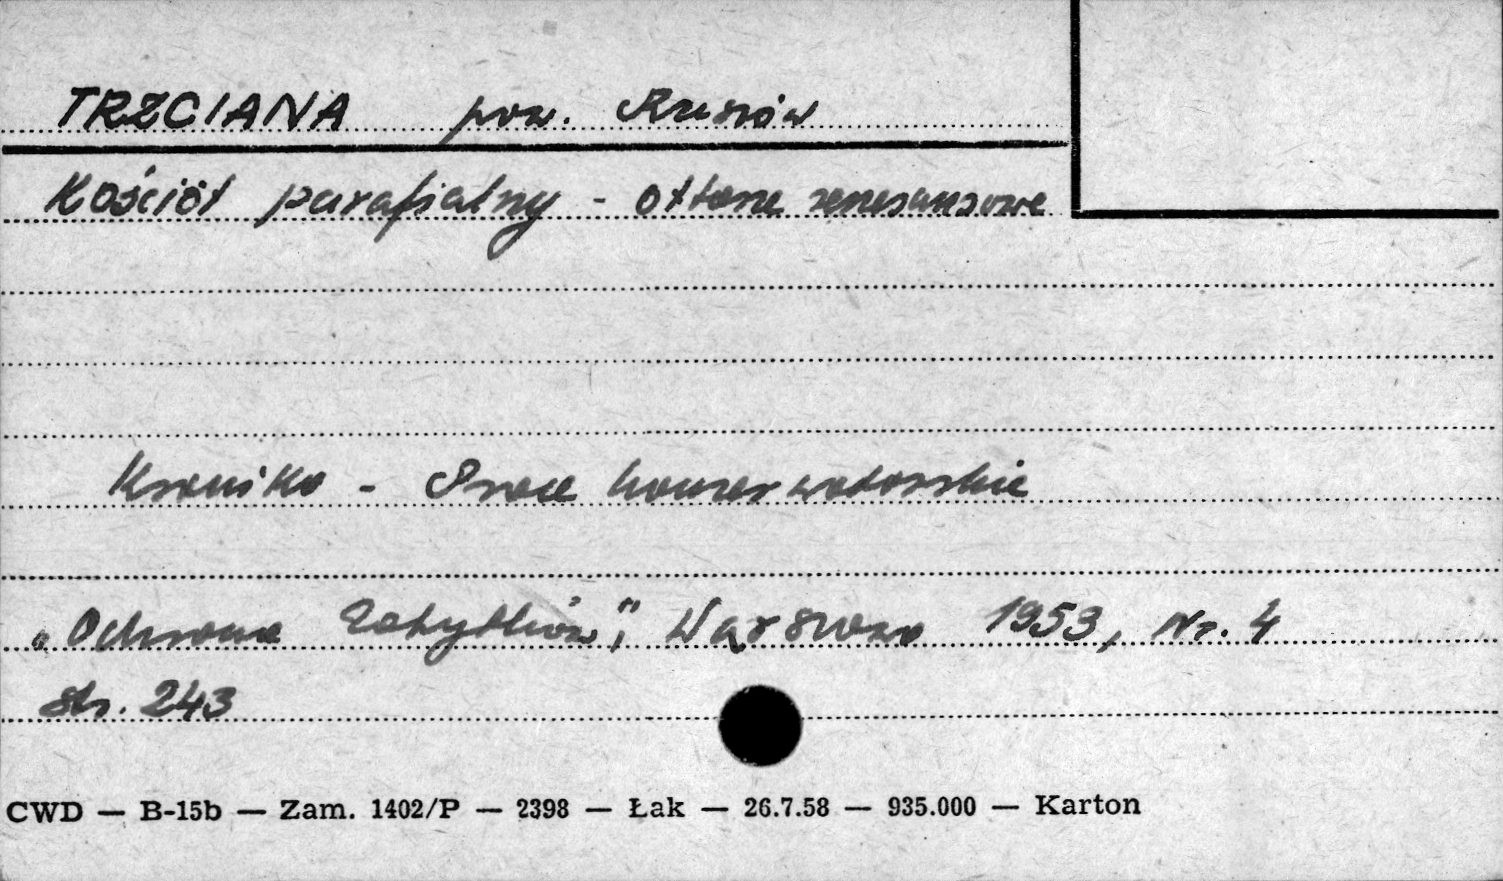 TRZCIANA pow. Rzeszów
Kościół parafialny - ołtarze renesansowe
Kronika - Prace konserwatorskie
„Ochrona Zabytków", Warszawa 1953, Nr. 4
str. 243
CWD — B-15b — Zam. 1402/P — 2398 — Łak — 26.7.58 — 935.000 — Karton